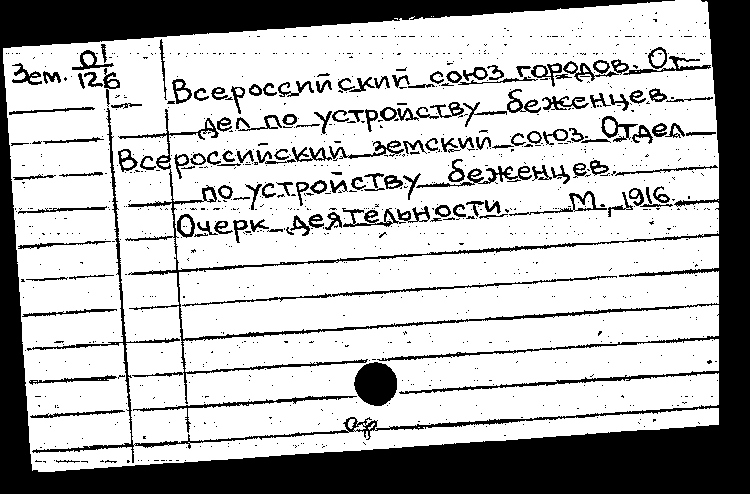 Зем. О/126
Всероссийский союз городов. От-
дел по устройству беженцев.
Всероссийский земский союз. Отдел
по устройству беженцев.
Очерк деятельности. М., 1916